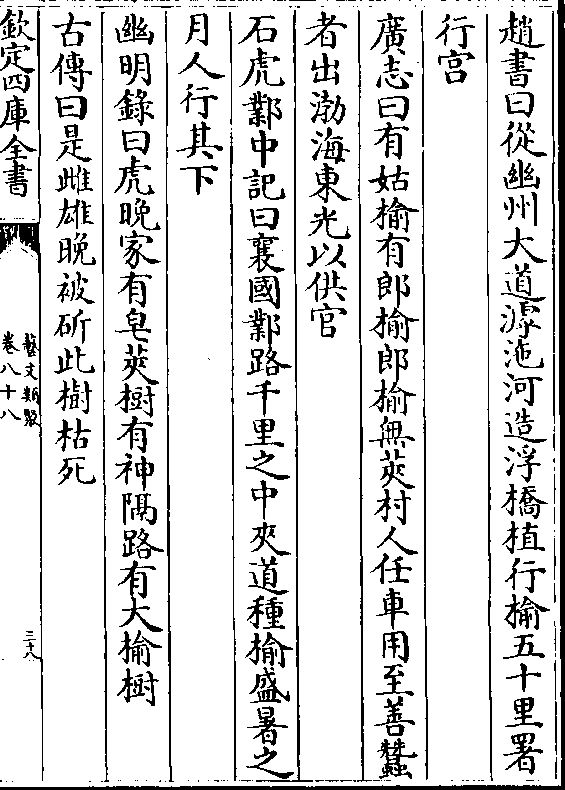 趙書曰從幽州大道滹沲河造浮橋植行榆五十里署
行宫
廣志曰有姑榆有郎榆郎榆無莢村人任車用至善蠶
者出渤海東光以供官
石虎鄴中記曰襄國鄴路千里之中夾道種榆盛暑之
月人行其下
幽明錄曰虎晚家有皂莢樹有神隔路有大榆樹
古傳曰是雌雄晚被斫此樹枯死
欽定四庫全書
藝文類聚
卷八十八
三十八